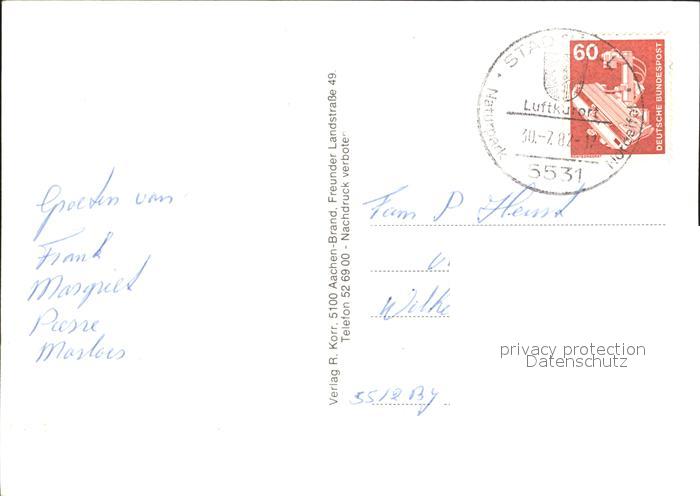 Groeten van
Frank
Margriet
Pierre
Marlois
Verlag R. Korr, 5100 Aachen-Brand, Freunder Landstraße 49
Telefon 52 69 00 - Nachdruck verboten
STAD
Luftkurort
30.-7.82-12
5531
Naturpark
60
DEUTSCHE BUNDESPOST
Fam P
Wilhe
5512 BY
privacy protection
Datenschutz